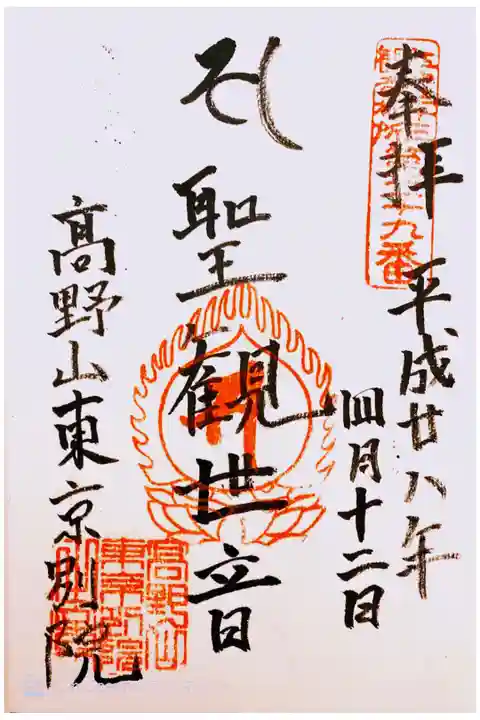 奉拝
平成廿八年
四月十二日
聖観世音
高野山東京別院
九番
高野山
東京別院